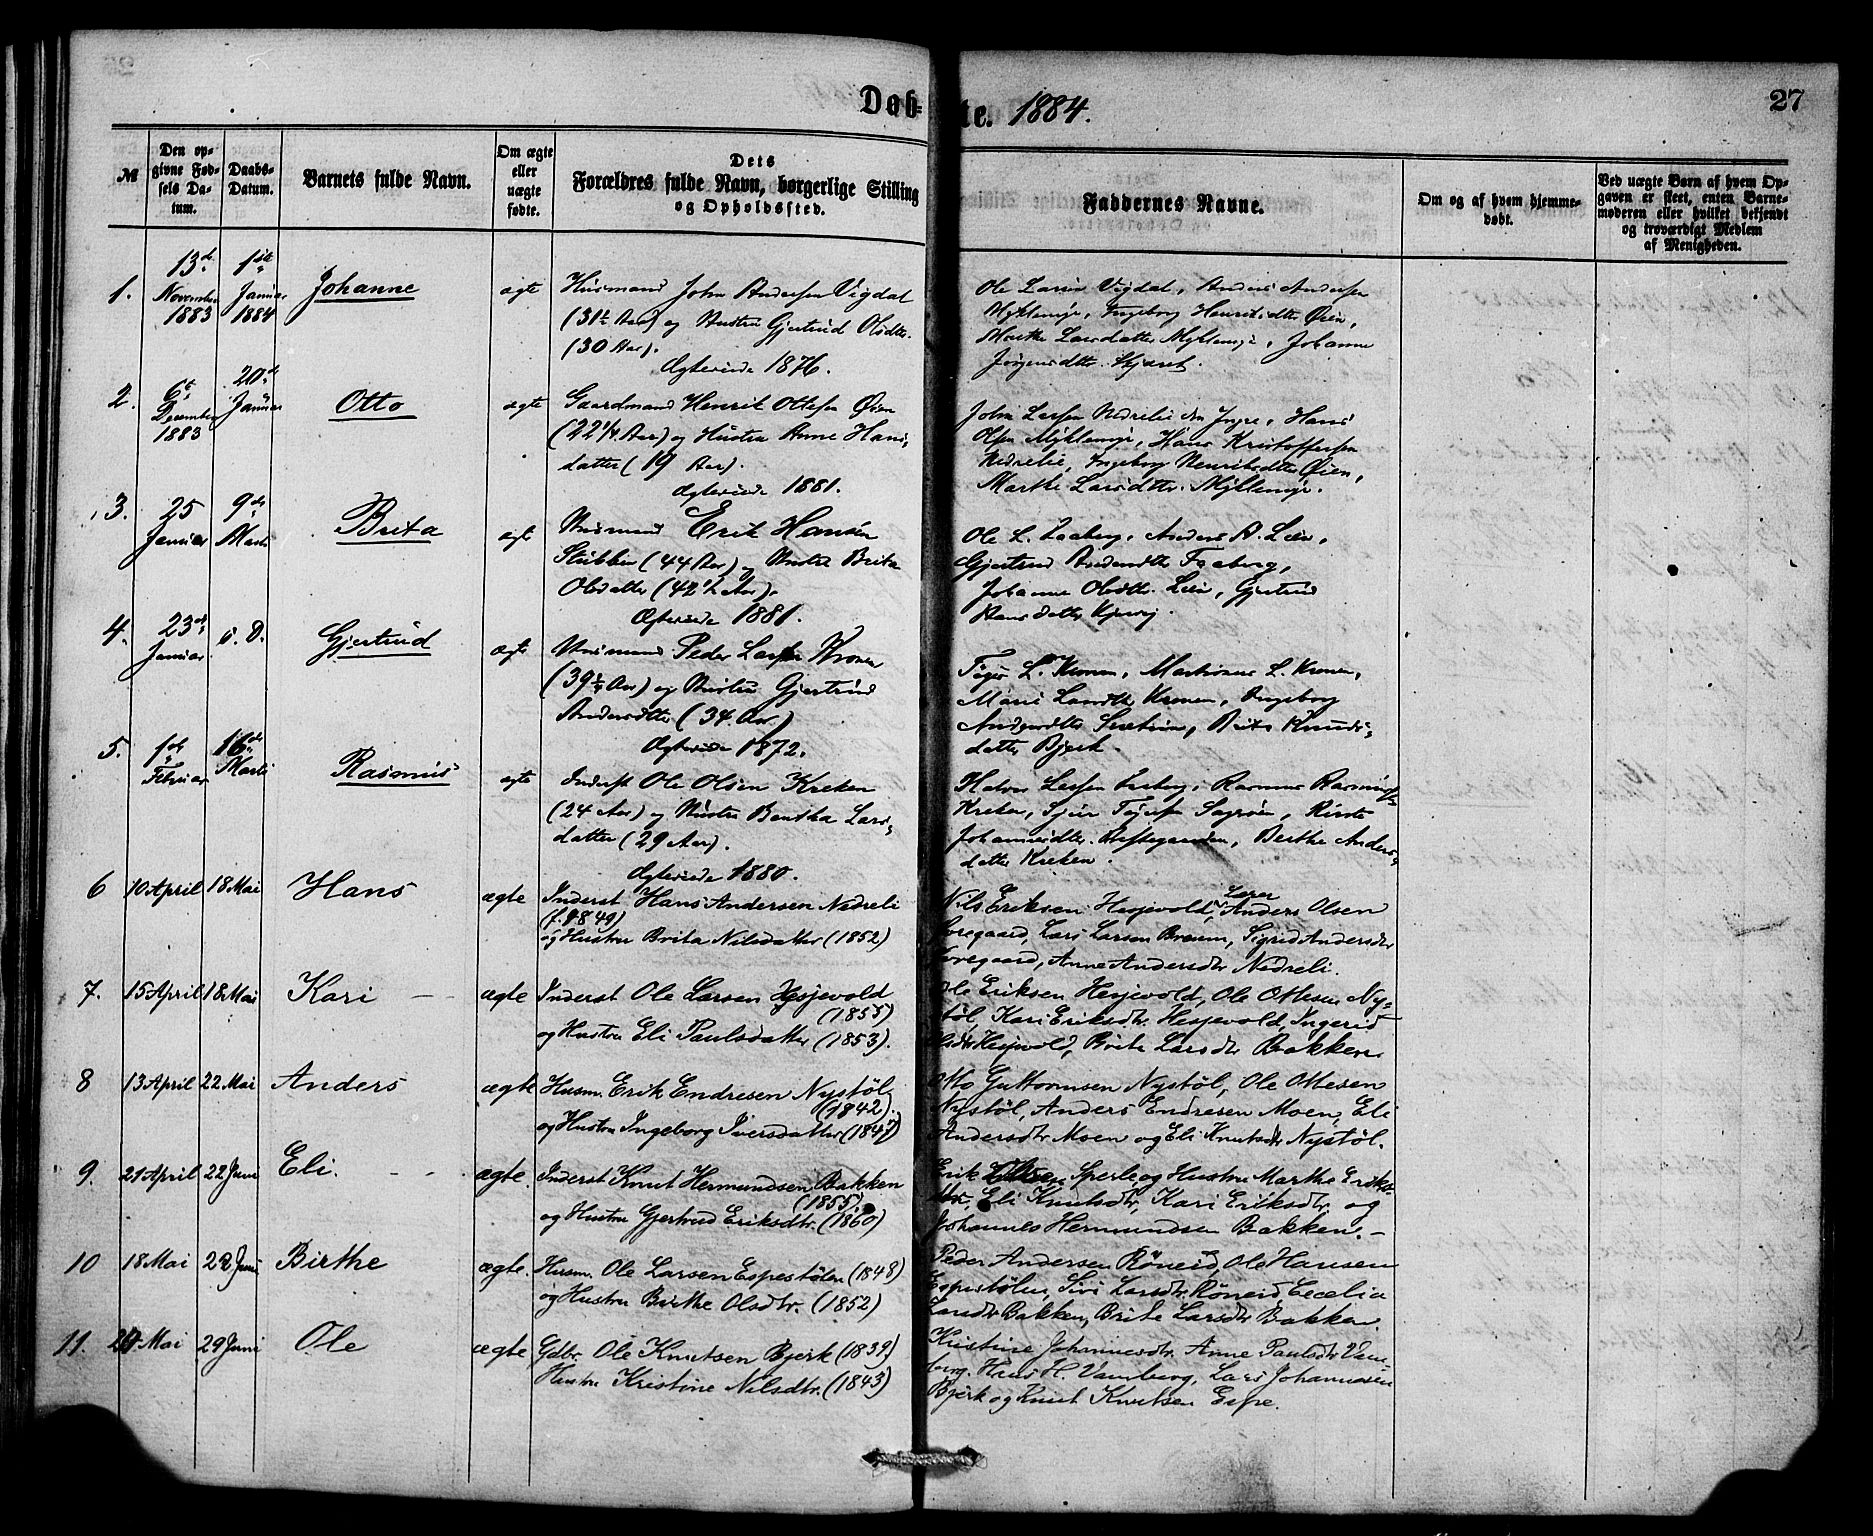 Døb-
te. 1884.
27
№
Den op-
givne Fød-
sels Da-
tum.
Daabs-
Datum.
Barnets fulde Navn.
Om ægte
eller
uægte
fødte.
Dets
Forældres fulde Navn, borgerlige Stilling
og Opholdssted.
Faddernes Navne.
Om og af hvem hjemme-
døbt.
Ved uægte Børn af hvem Op-
gaven er skeet, enten Barne-
moderen eller hvilket bekjendt
og troværdigt Medlem
af Menigheden.
1. 13de November 1883 1ste Januar 1884 Johanne ægte
Husmand John Andersen Vigdal
(31½ Aar) og Hustru Gjertrud Olsdtr.
(30 Aar).
Ægteviede 1876.
Ole Larsen Vigdal, Anders Andersen
Myklemyr, Ingeborg Henriksdtr Øien,
Marthe Larsdatter Myklemyr, Johanne
Jørgensdtr. Skjæret.
2. 6te December 1883 20de Januar Otto ægte
Gaardmand Henrik Ottesen Øien
(22¼ Aar) og Hustru Anne Hans-
datter (19 Aar).
Ægteviede 1881.
John Larsen Nedrelie den Yngre, Hans
Olsen Myklemyr, Hans Kristoffersen
Nedrelie, Ingeborg Henriksdtter Øien,
Marthe Larsdtr. Myklemyr.
3. 25 Januar 9de Marts Brita ægte
Husmand Erik Hansen
Stubben (44 Aar) og Hustru Brita
Olsdatter (42½ Aar).
Ægteviede 1881.
Ole L. Faaberg, Anders A. Lien,
Gjertrud Andersdtr Faaberg,
Johanne Olsdtr. Lien, Gjertrud
Hansdatter
4. 23de Januar s. D. Gjertrud ægte
Husmand Peder Larsen Kronen
(39½ Aar) og Hustru Gjertrud
Andersdtter (34 Aar)
Ægteviede 1872.
L. Kronen, Martinus L. Kronen,
Mari Larsdtr Kronen, Ingeborg
Andersdtter Brita Knuds-
datter Bjerk.
5. 1ste Februar 16de Marts Rasmus ægte
Inderst Ole Olsen Kreken
(24 Aar) og Hustru Bentha Lars-
datter (29 Aar).
Ægteviede 1880.
Halvor Larsen Rasmus Rasmus-
Kreken, Sjur
Johannesdtter. Berthe Anders-
datter Kreken.
6 10 April 18 Mai Hans ægte
Inderst Hans Andersen Nedreli
(f. 1849)
og Hustru Brita Nilsdatter (1852)
Nils Eriksen Hesjevold, Lærer Anders Olsen
Lars Larsen Sigrid Andersdtr
Anne Andersdtr Nedreli.
7. 15 April 18 Mai Kari ægte
Inderst Ole Larsen Hesjevold
(1855)
og Hustru Eli Paulsdatter (1853).
Ole Eriksen Hesjevold, Ole Ottesen Ny-
støl, Kari Eriksdtr. Hesjevold, Ingerid
Hesjevold, Brite Larsdtr Bakken.
8 13 April 22 Mai Anders ægte
Husm. Erik Endresen Nystøl
(1842).
og Hustru Ingeborg Iversdatter (1847)
Otto Guttormsen Nystøl, Ole Ottesen
Nystøl, Anders Endresen Moen, Eli
Andersdtr Moen og Eli Knutsdtr Nystøl.
9. 21 April 22 Juni Eli. ægte.
Inderst Knut Hermundsen Bakken
(1855)
og Hustru Gjertrud Eriksdtr. (1860)
Erik Sperle og Hustru Marthe Eriks-
dtr, Eli Knutsdtr, Kari Eriksdtr. og
Johannes Hermundsen Bakken.
10 18 Mai 22 Juni Birthe ægte.
Husm. Ole Larsen Espestølen (1848)
og Hustru Birthe Olsdtr. (1852)
Peder Andersen Röneid, Ole Hansen
Espestølen, Siri Larsdtr Röneid, Cecelia
Larsdtr Bakken, Brite Larsdtr Bakken.
11. Mai 29 Juni Ole ægte
Gdbr. Ole Knutsen Bjerk (1839)
Hustru Kristine Nilsdtr. (1843)
Kristine Johannesdtr. Anne Paulsdtr Vam-
berg, Hans H. Vamberg, Lars Johannesen
Bjerk og Knut Knutsen Espe.